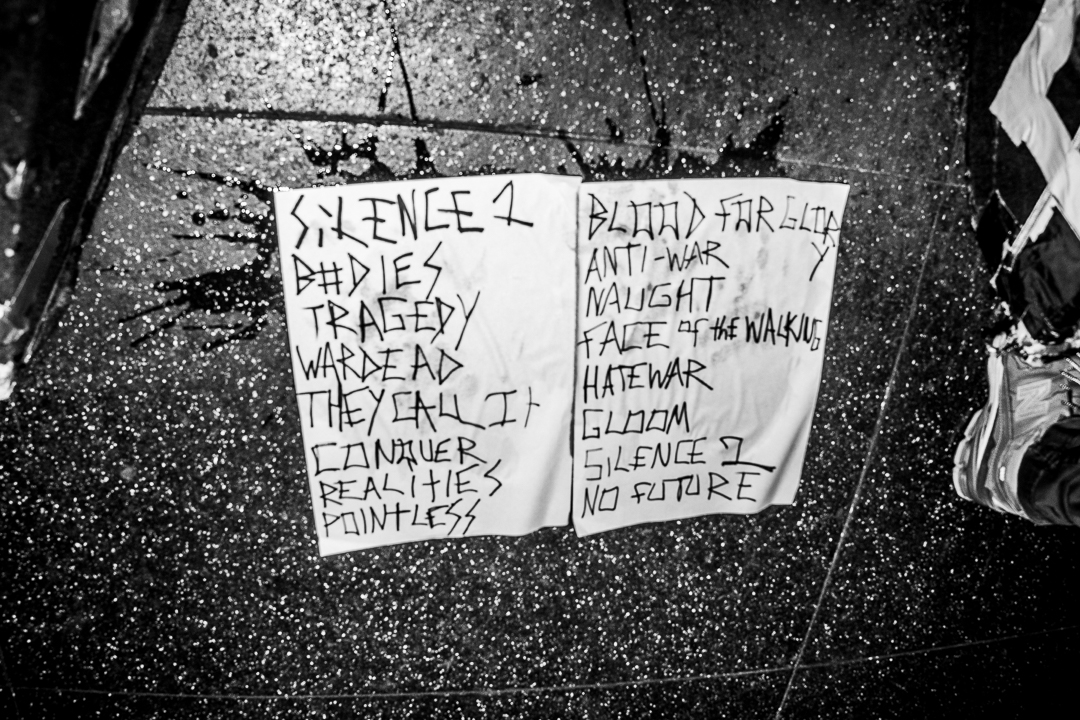 SiLENCE 1
B#DIES
TRAGEDY
WARDEAD
THEY CALL It
CONQUER
REALITIES
POINTLESS
BLOOD FOR GLORY
ANTI-WAR
NAUGHT
FACE of the WALKING
HATEWAR
GLOOM
SiLENCE 2
NO FUTURE